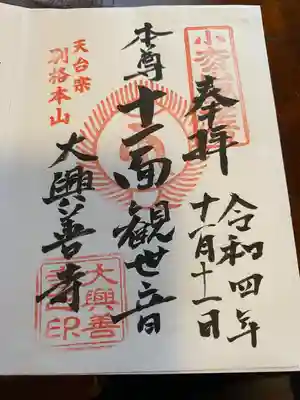 奉拝
令和四年
十一月十一日
本尊十一面観世音
天台宗
別格本山
大興善寺
大興善
寺印